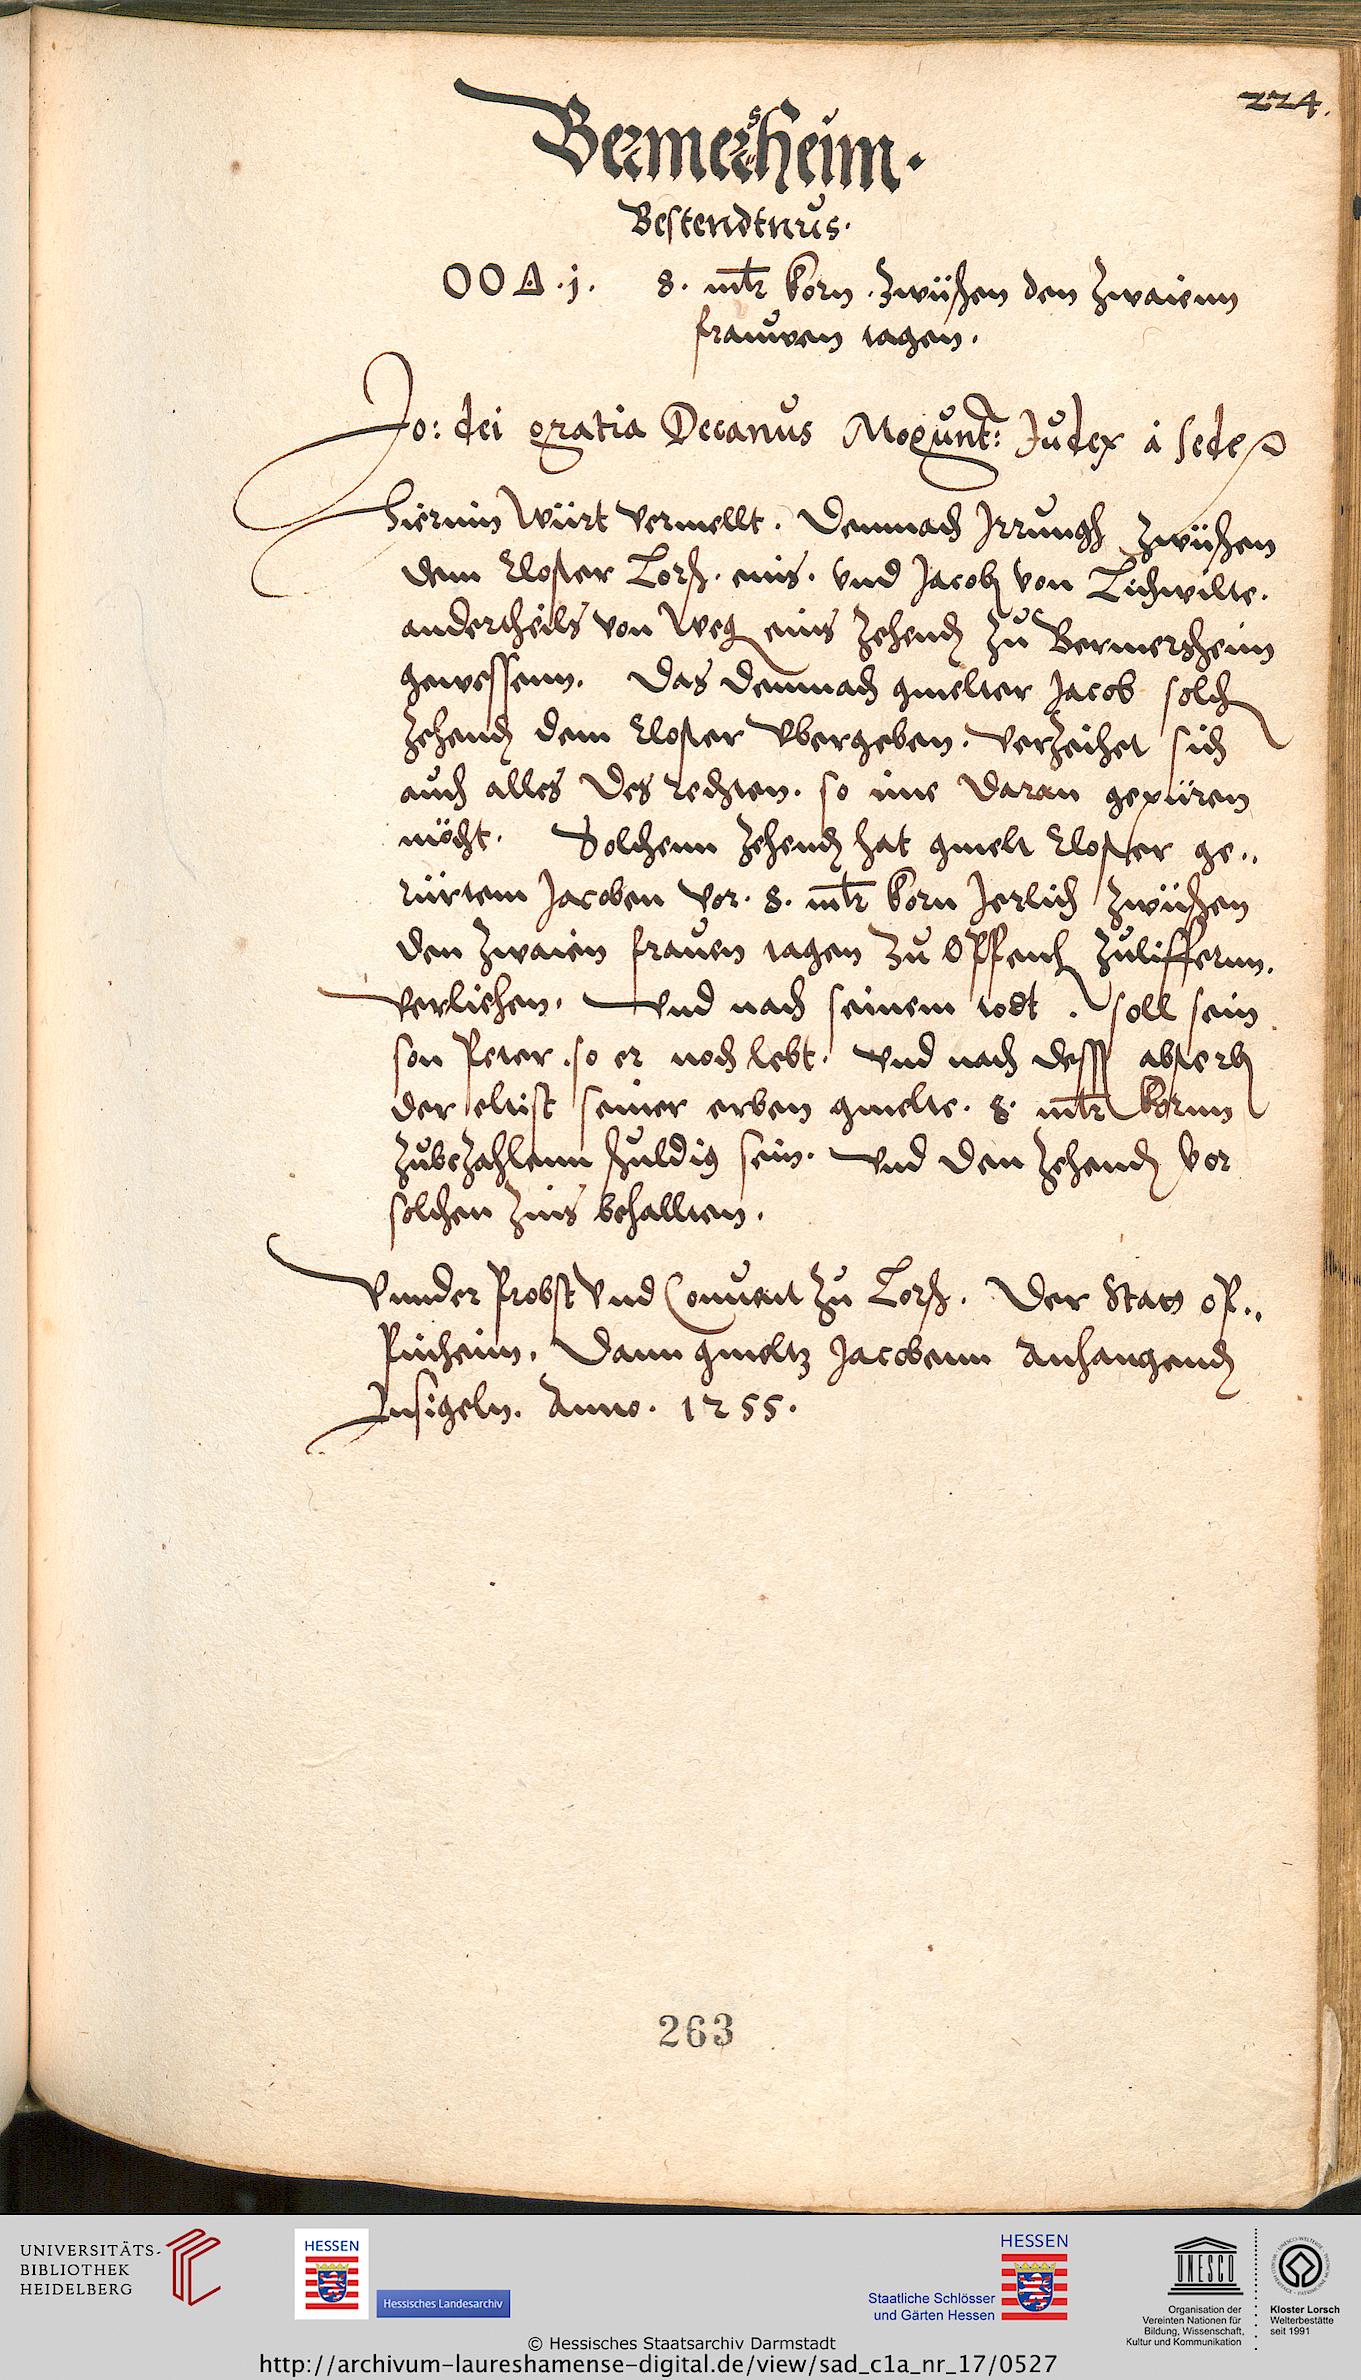 224.
Bermersheim.
Bestendtnus.
OO∆.j. 8. mltr korn. zwüschen den zwaienn
frauwen tagen.
Jo: dei gratia Decanus Mogunt: Judex à sede
Hierinn Würt vermellt. Demnach Irrungh zwüschen
dem Closter Lorsch. eins. und Jacob von Lichwilte.
andertheils von Weg eins zehend zu Bermersheim
gewessenn. Das demnach gmelter Jacob solch
zehend dem Closter Ubergeben. verzeihet sich
auch alles des rechten. so ime daran gepüren
möcht. Solchenn zehend hat gmelt Closter ge„
rürtem Jacoben vor. 8. mltr korn Jerlich zwüschen
den zwaien frauen tagen zu Oppenh zulifferun.
verliehen. Und nach seinem todt. soll sein
son Peter. so er noch lebt. und nach dess absterb
der eltist seiner erben gmelte. 8. mltr kornn
zubezahlenn schuldig sein. und den zehend vor
solchen zins behallten.
Vnnder Probst und Convent zu Lorsch. Der Statt op„
penheim. Dann gmeltz Jacobenn anhangend
Insigeln. Anno. 1255.
263
UNIVERSITÄTS-
BIBLIOTHEK
HEIDELBERG
HESSEN
Hessisches Landesarchiv
HESSEN
Staatliche Schlösser
und Gärten Hessen
UNESCO
Organisation der
Vereinten Nationen für
Bildung, Wissenschaft,
Kultur und Kommunikation
Kloster Lorsch
Welterbestätte
seit 1991
© Hessisches Staatsarchiv Darmstadt
http://archivum-laureshamense-digital.de/view/sad_c1a_nr_17/0527